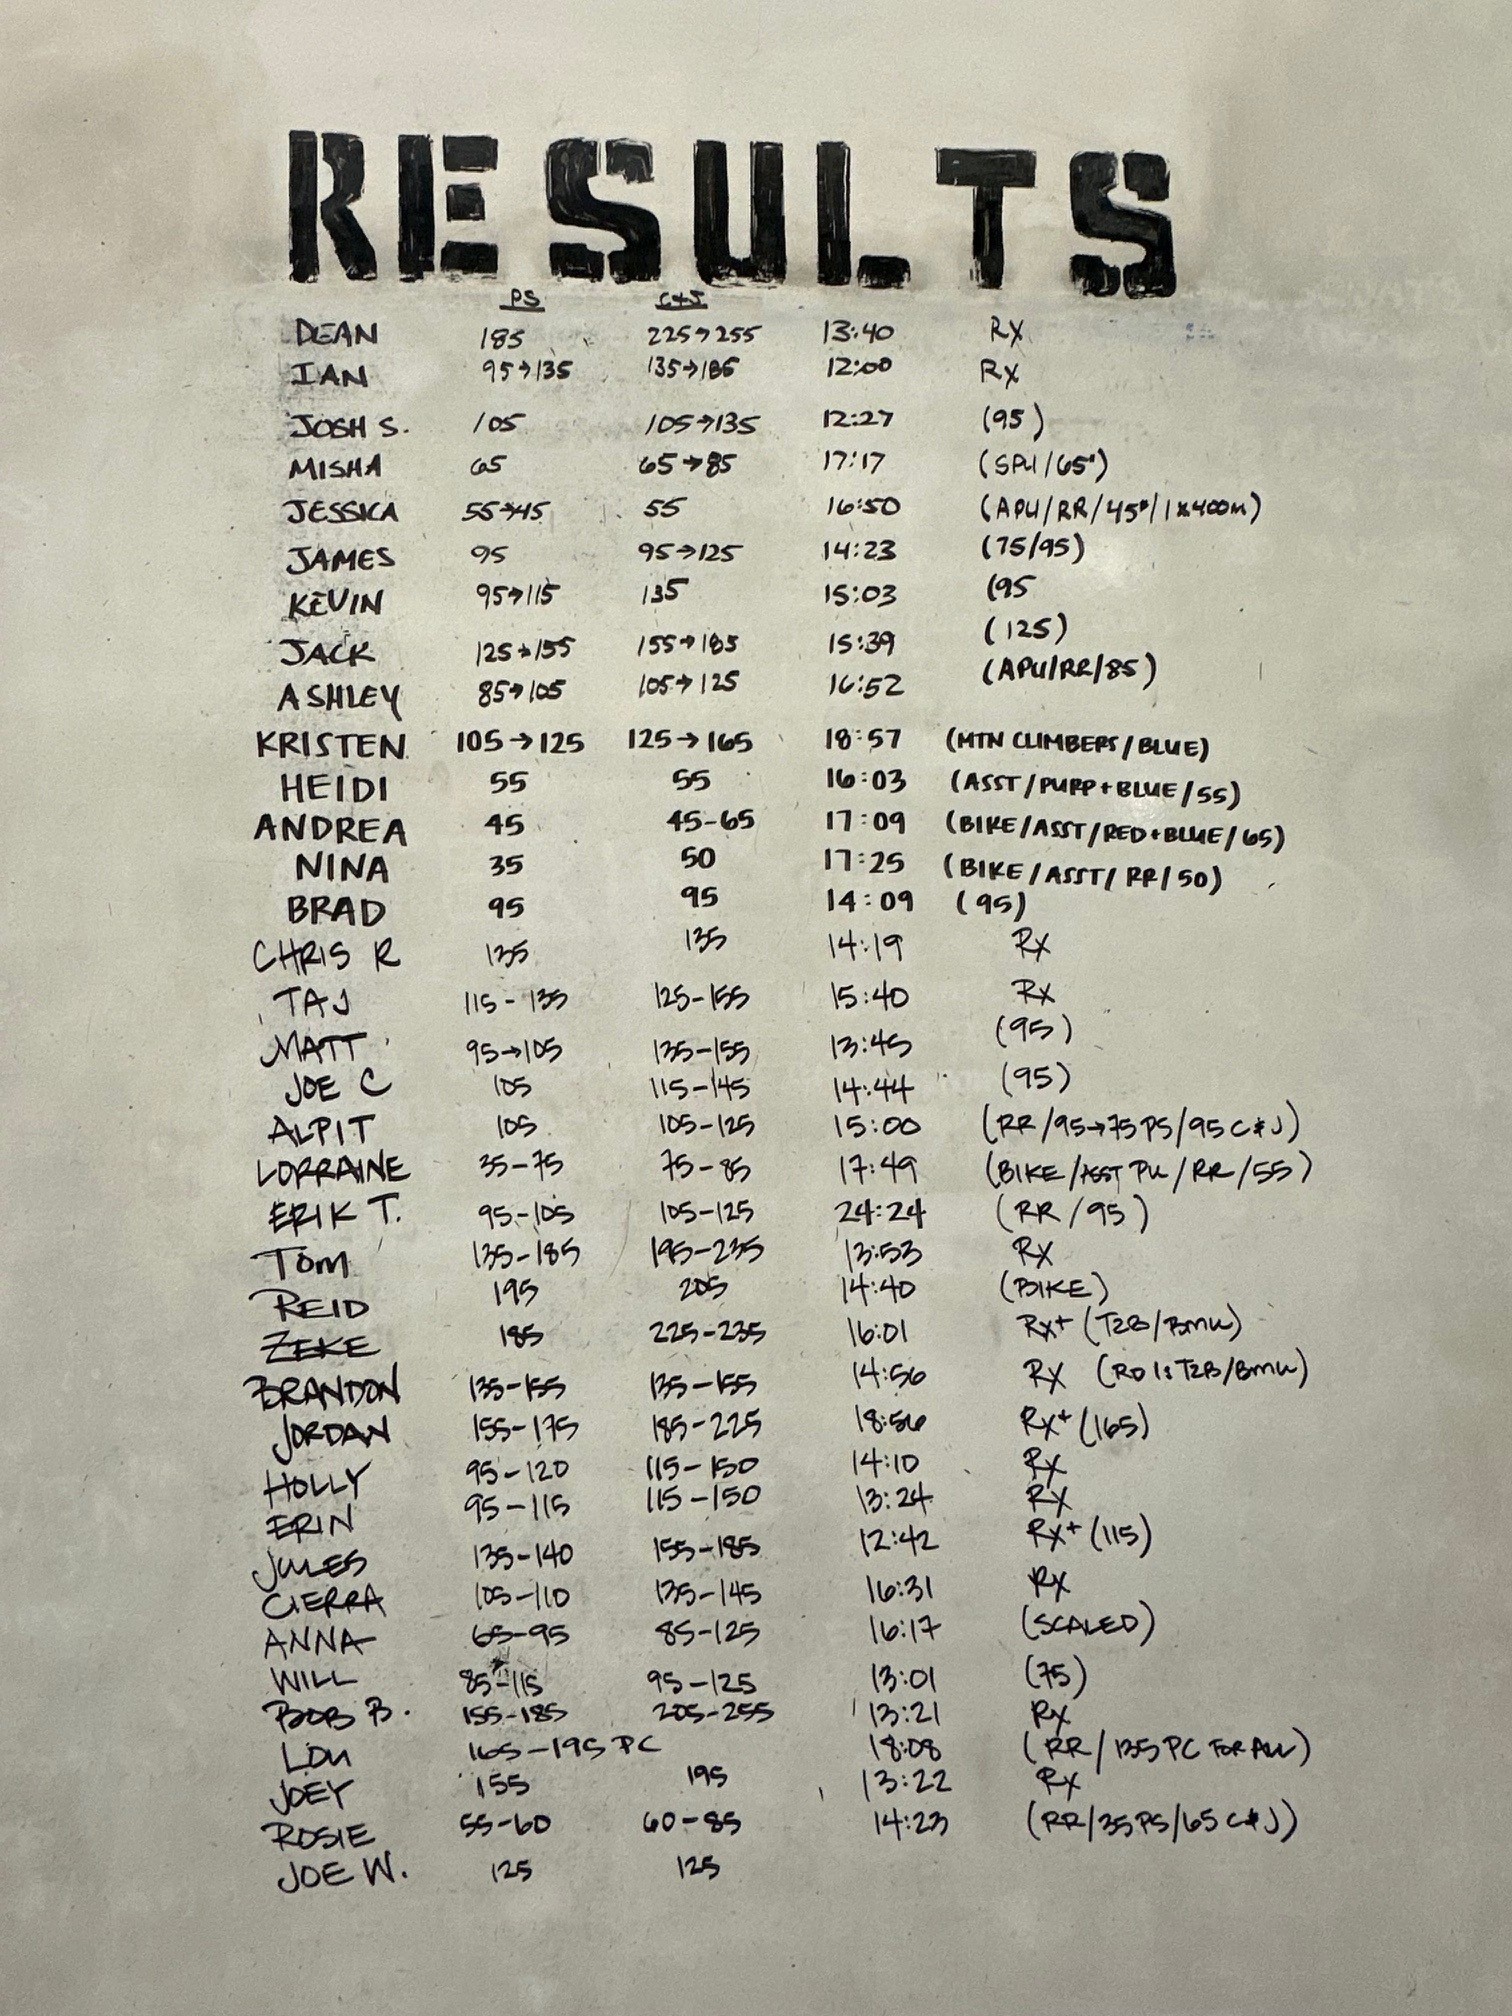 RESULTS
PS C+J
DEAN 185 225→255 13:40 RX
IAN 95→135 135→185 12:00 RX
JOSH S. 105 105→135 12:27 (95)
MISHA 65 65→85 17:17 (SPU/65#)
JESSICA 55→45 55 16:50 (APU/RR/45#/1x400m)
JAMES 95 95→125 14:23 (75/95)
KEVIN 95→115 135 15:03 (95
JACK 125→155 155→185 15:39 (125)
ASHLEY 85→105 105→125 16:52 (APU/RR/85)
KRISTEN 105→125 125→165 18:57 (MTN CLIMBERS/BLUE)
HEIDI 55 55 16:03 (ASST/PURP+BLUE/55)
ANDREA 45 45-65 17:09 (BIKE/ASST/RED+BLUE/65)
NINA 35 50 17:25 (BIKE/ASST/RR/50)
BRAD 95 95 14:09 (95)
CHRIS R 135 135 14:19 RX
TAJ 115-135 125-155 15:40 RX
MATT 95→105 135-155 13:45 (95)
JOE C 105 115-145 14:44 (95)
ALPIT 105 105-125 15:00 (RR/95→75PS/95 C&J)
LORRAINE 35-75 75-85 17:49 (BIKE/ASST PU/RR/55)
ERIK T. 95-105 105-125 24:24 (RR/95)
TOM 135-185 195-235 13:53 RX
REID 195 205 14:40 (BIKE)
ZEKE 185 225-235 16:01 RX+ (T2B/BMU)
BRANDON 135-155 135-155 14:56 RX (RD 1: T2B/BMU)
JORDAN 155-175 185-225 18:56 RX+ (165)
HOLLY 95-120 115-150 14:10 RX
ERIN 95-115 115-150 13:24 RX
JULES 135-140 155-185 12:42 RX+ (115)
CIERRA 105-110 135-145 16:31 RX
ANNA 65-95 85-125 16:17 (SCALED)
WILL 85-115 95-125 13:01 (75)
BOB B. 155-185 205-255 13:21 RX
LOU 165-195 PC 18:08 (RR/135 PC FOR ALL)
JOEY 155 195 13:22 RX
ROSIE 55-60 60-85 14:23 (RR/35PS/65 C&J)
JOE W. 125 125